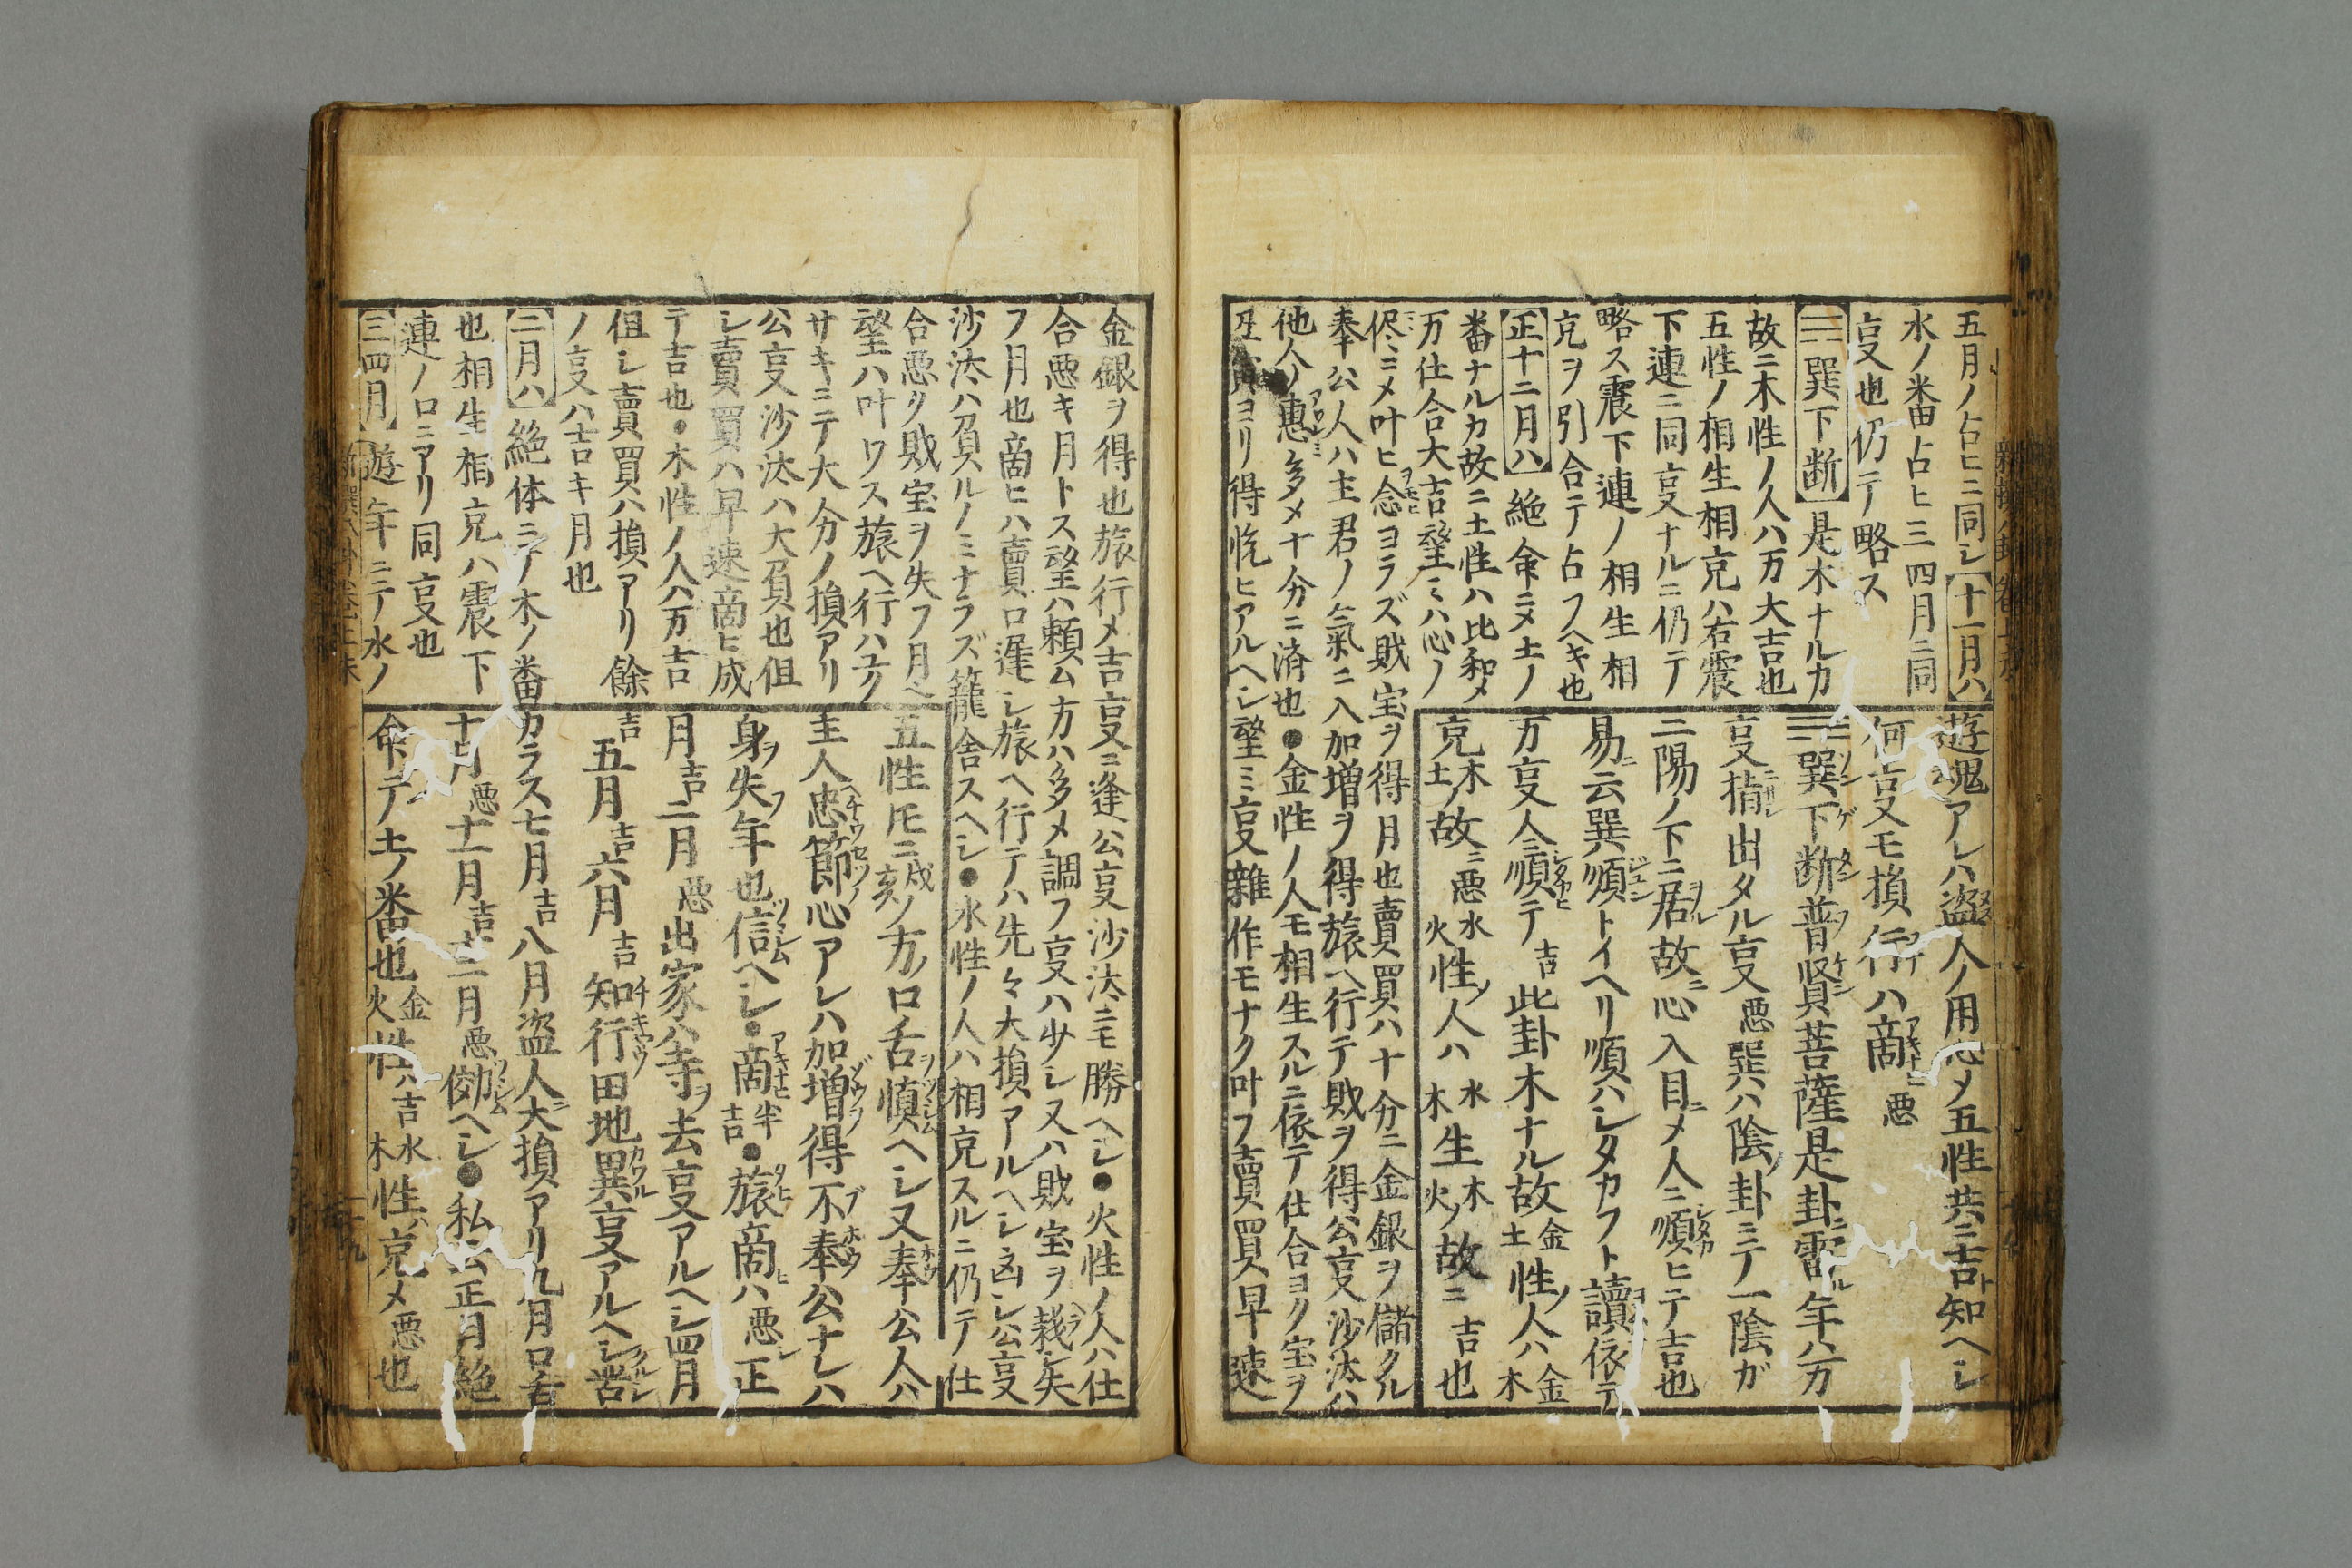 五月ノ占ヒニ同シ【十一月ハ】
水ノ番占ヒ三四月ニ同
㕝也仍テ略ス
【☴巽下断】是木ナルカ
故ニ木性ノ人ハ万大吉也
五性ノ相生相克ハ右震
下連ニ同㕝ナルニ仍テ
略ス震下連ノ相生相
克ヲ引合テ占フヘキ也
【正十二月ハ】絶命ニメ土ノ
番ナルカ故ニ土性ハ比和メ
万仕合大吉望ミハ心ノ
侭ニメ叶ヒ念ヨラズ財宝ヲ得月也賣買ハ十分ニ金銀ヲ儲クル
奉公人ハ主君ノ氣ニ入加増ヲ得旅ヘ行テ財ヲ得公㕝沙汰ハ
他人ノ惠多メ十分ニ済也●金性ノ人モ相生スルニ依テ仕合ヨク宝ヲ
ヨリ得悦ヒアルヘシ望ミ㕝雜作モナク叶フ賣買早速
遊魂アレハ盗人ノ用心メ五性共ニ吉ト知ヘシ
何㕝モ損行ハ啇悪
☴巽下断普賢菩薩是卦ニ當ル年ハ万
㕝揹出タル㕝悪巽ハ陰ノ卦ニテ一陰ガ
二陽ノ下ニ居故ニ心入目ニメ人ニ順ヒテ吉也
易ニ云巽順トイヘリ順ハシタカフト讀依テ
万㕝人ニ順テ吉此卦木ナル故金土性ノ人ハ金木
克木土ノ故ニ悪水火性ノ人ハ水木生木火ノ故ニ吉也
金銀ヲ得也旅行メ吉㕝ニ逢公㕝沙汰ニモ勝ヘシ●火性ノ人ハ仕
合悪キ月トス望ハ頼ム方ハ多メ調フ㕝ハ少シ又ハ財宝ヲ失
フ月也啇ヒハ賣口遲シ旅ヘ行テハ先々大損アルヘシ凶シ公㕝
沙汰ハ負ルノミナラズ籠舎スヘシ●水性ノ人ハ相克スルニ仍テ仕
合悪ク財宝ヲ失フ月也
望ハ叶ワス旅ヘ行ハ
サキニテ大分ノ損アリ
公㕝沙汰ハ大負也但
シ賣買ハ早速啇ヒ成
テ吉也●木性ノ人ハ万吉
但シ賣買ハ損アリ餘
ノ㕝ハ吉キ月也
【二月ハ】絶体ニテ木ノ番
也相生相克ハ震下
連ノ口ニアリ同㕝也
【三四月】遊年ニテ水ノ
五性圧ニ戌亥ノ方ノ口舌慎ヘシ又奉公人ハ
主人ヘ忠節心アレハ加増ノ得不奉公ナレハ
身ヲ失フ年也信ヘシ●啇半吉●旅啇ヒハ悪シ正
月吉二月悪出家ハ寺ヲ去㕝アルヘシ四月
吉五月吉六月吉知行田地異㕝アルヘシ苦
カラス七月吉八月盗人ニ大損アリ九月口舌
十月悪十一月吉十二月悪ヘシ●私云正月絶
命ニテ土ノ番也金火性ハ吉水木性ハ克メ悪也